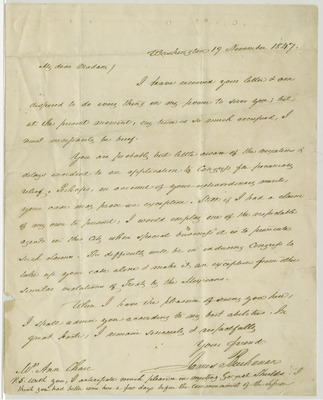 Washington 19 November 1847.
My dear Madam,
I have received your letter & am
disposed to do every thing in my power to serve you; but
at the present moment, my time is so much occupied, I
must necessarily be brief.
You are probably but little aware of the vexations &
delays incident to an application to Congress for pecuniary
relief. Perhaps, on account of your extraordinary merits,
your case may prove an exception. Still if I had a claim
of my own to present, I would employ one of the respectable
agents in this City whose special business it is to prosecute
such claims. The difficulty will be in inducing Congress to
take up your case alone & make it an exception from other
similar violations of Treaty by the Mexicans.
When I have the pleasure of seeing you here,
I shall advise you according to my best abilities. In
great haste, I remain sincerely & respectfully
Your friend
James Buchanan
Mrs Ann Chase
P.S. With you, I anticipate much pleasure in meeting Genl Shields. I
think you had better come here a few days before the commencement of the session